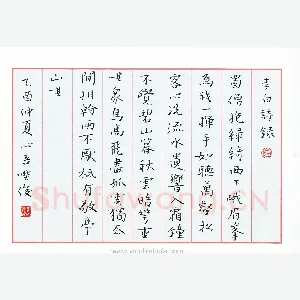 李白詩錄
蜀僧抱綠綺西下峨眉峯
為我一揮手如聽萬壑松
客心洗流水遺響霜鐘
不覺碧山暮秋雲暗幾重
眾鳥高飛盡孤雲獨去
閒相看兩不厭只有敬亭
山
乙酉仲夏